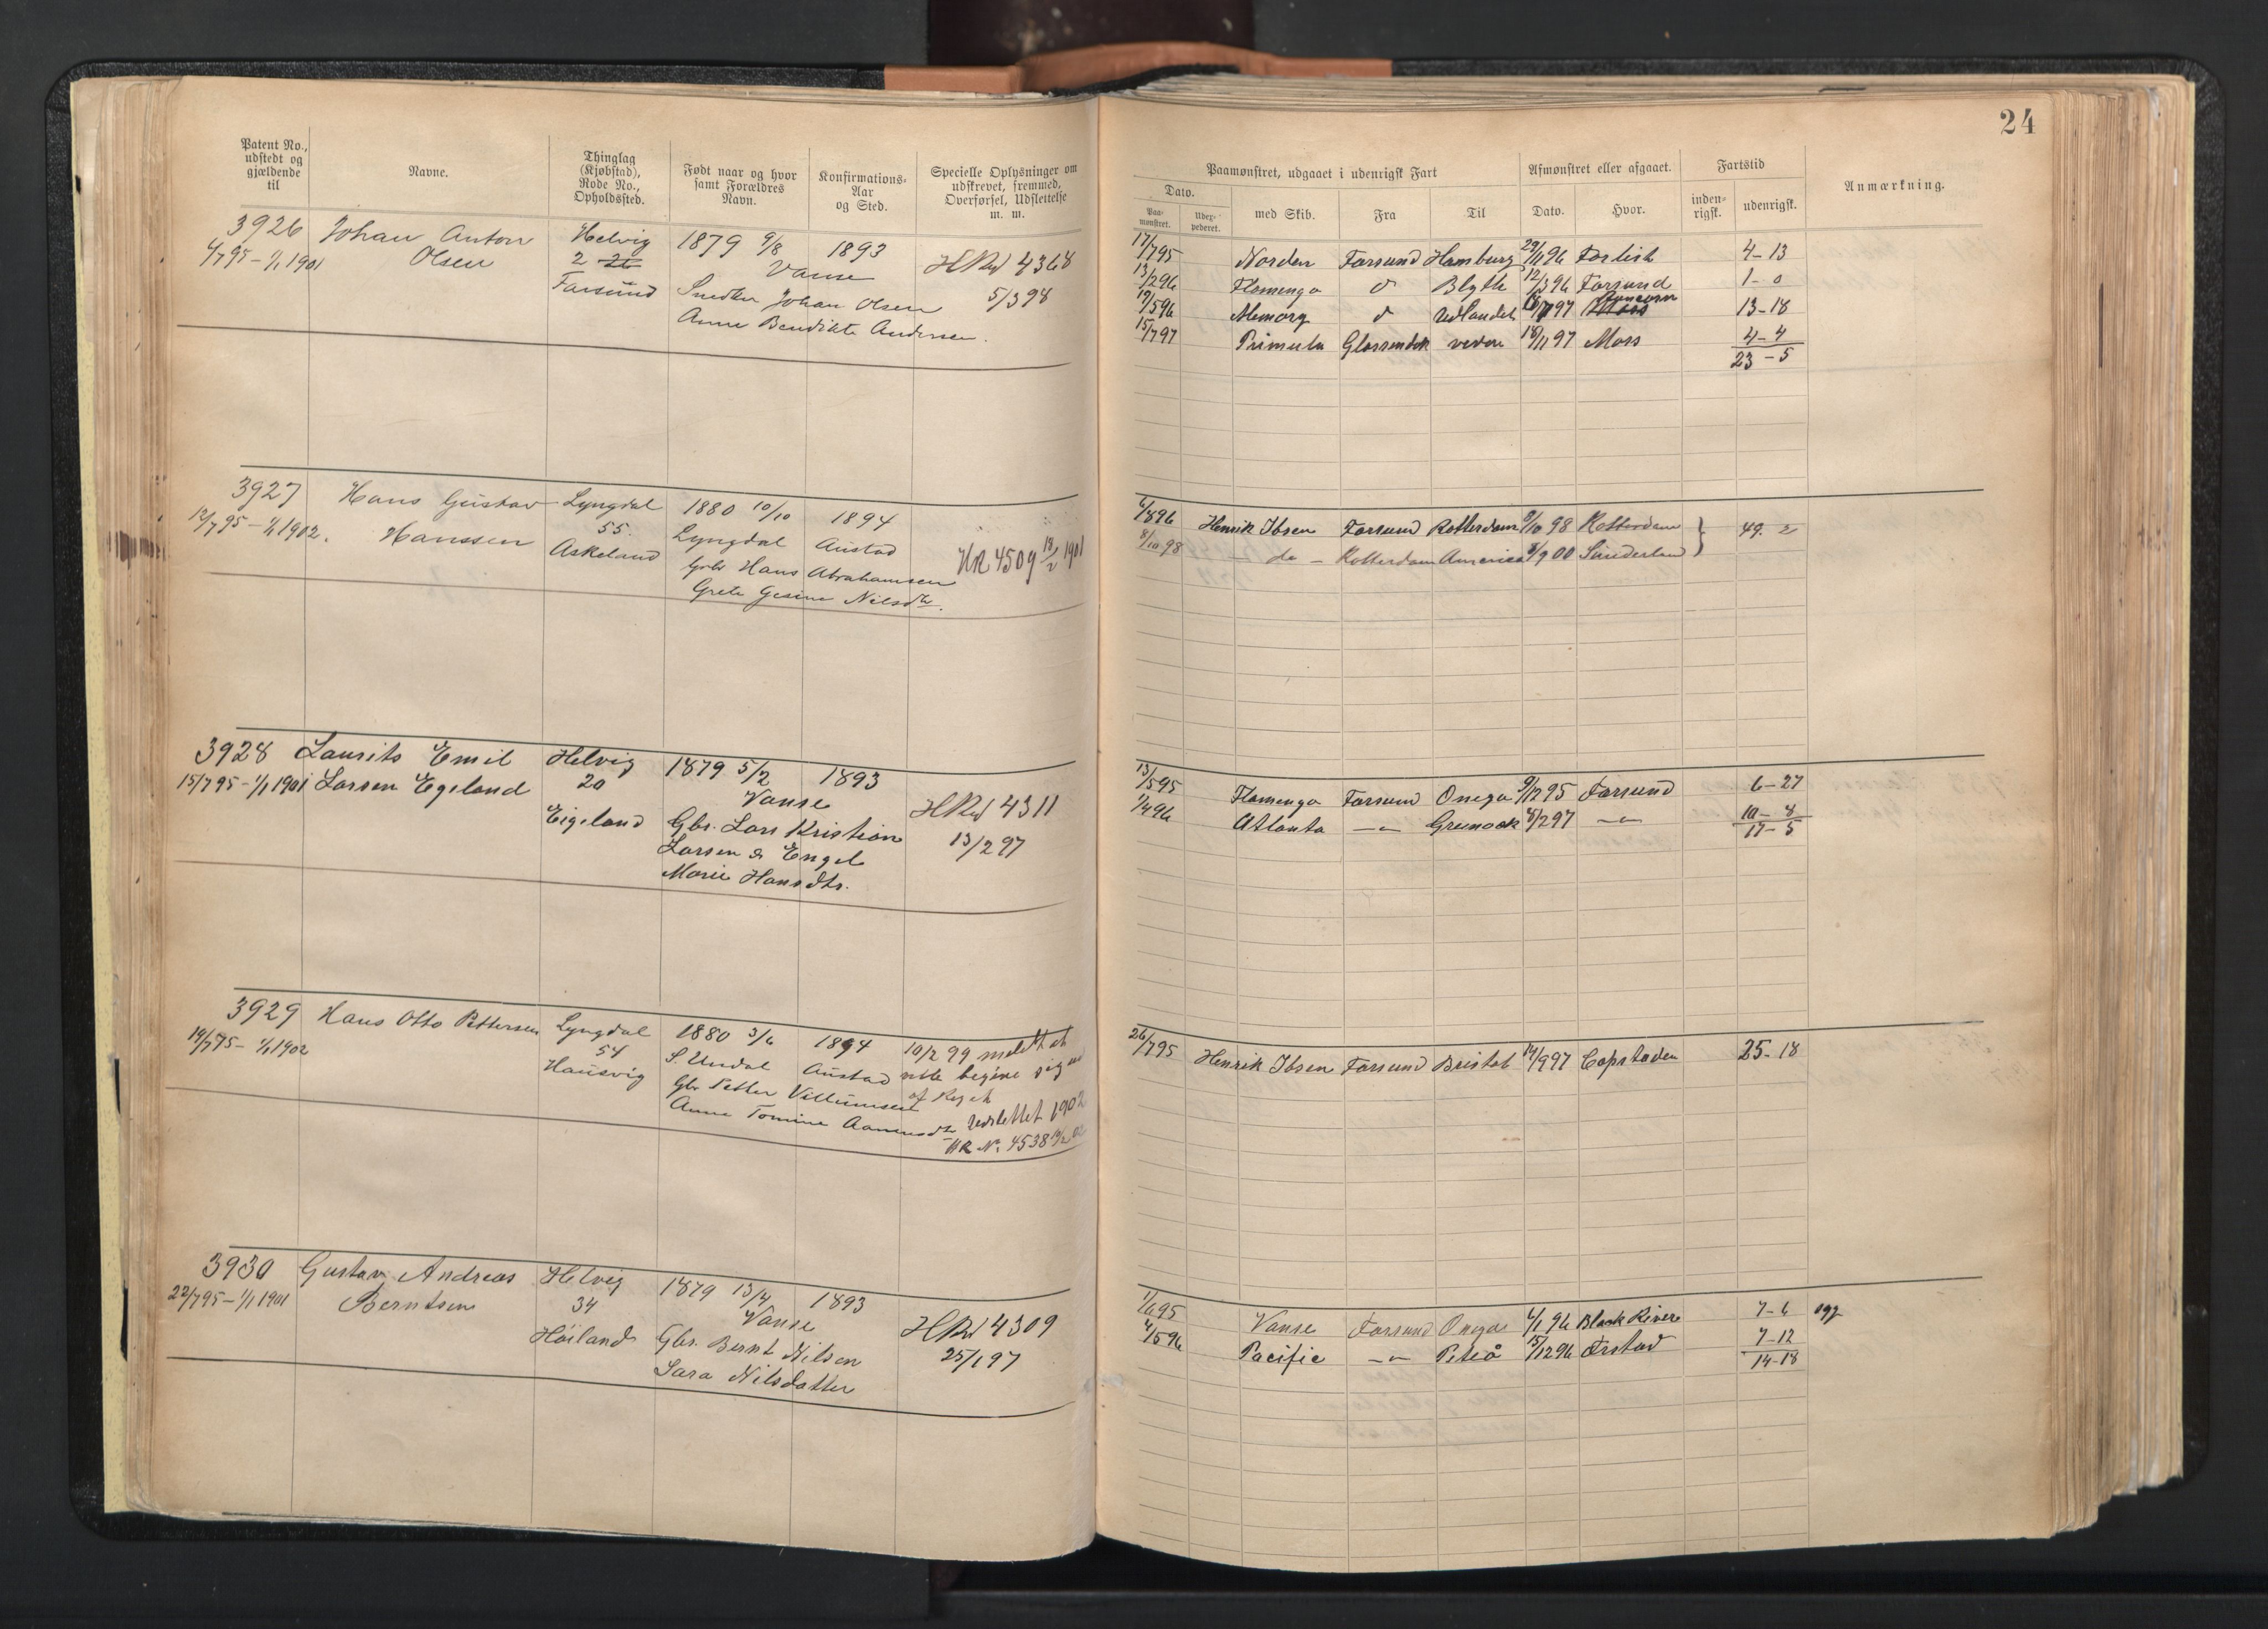 24
Patent No., udstedt og gjældende til
Navne.
Thinglag (Kjøbstad), Rode No., Opholdssted.
Født naar og hvor samt Forældres Navn.
Konfirmations-Aar og Sted.
Specielle Oplysninger om udskrevet, fremmed, Overførsel, Udslettelse m. m.
Paamønstret, udgaaet i udenrigsk Fart
Afmønstret eller afgaaet.
Fartstid
Anmærkning.
Dato.
Paa-mønstret.
Uder-pederet.
med Skib.
Fra
Til
Dato.
Hvor.
inden-rigsk.
udenrigsk.
3926 Johan Anton Helvig 1879 9/8 1893 HRul 4368
4/7 95 - 1/1 1901 Olsen 2 Vanse 5/3 98
Farsund Snedker Johan Olsen
Anne Bendikte Andersen.
17/7 95 Norden Farsund Hamburg 29/1 96 4-13
13/2 96 Flamengo d Blyth 12/3 96 Farsund 1-0
19/5 96 d Udlandet Runcorn 13-18
15/7 97 Primula veden 18/11 97 Moss 4-4
23-5
3927 Hans Gustav Lyngdal 1880 10/10 1894
12/7 95 - 1/1 1902. Hanssen 55. Lyngdal Austad HR 4509 18/2 1901
Askeland Gbr Hans Abrahamsen
Grete Gesine Nilsdtr.
6/8 96 Henrik Ibsen Farsund Rotterdam 8/10 98 Rotterdam 49. 2
8/10 98 - do - Rotterdam America 8/9 00 Sunderland
3928 Laurits Emil Helvig 1879 5/2 1893 HRul 4311
15/7 95 - 1/1 1901 Larsen Egeland 20 Vanse 13/2 97
Eigeland Gbr. Lars Kristian
Larsen & Engel
Marie Hansdtr.
13/5 95 Flamengo Farsund Onega 9/12 95 Farsund 6-27
1/4 96 Atlanta -"- Greenock 8/2 97 -"- 10-8
17-5
3929 Hans Otto Pettersen Lyngdal 1880 3/6 1894 10/2 99 meldt at
19/7 95 - 1/1 1902 54 S. Undal Austad ville begive sig ud
Hausvig Gbr Petter Villumsen af Riget
Anne Tomine Aanensdtr Udslettet 1902
HR No. 4538
26/7 95 Henrik Ibsen Farsund Bristol 14/9 97 Capstaden 25-18
3930 Gustav Andreas Helvig 1879 13/4 1893 HRul 4309
22/7 95 - 1/1 1901 Berntsen 34 Vanse 25/1 97
Høiland Gbr. Bernt Nilsen
Sara Nilsdatter
1/6 95 Vanse Farsund Onega 6/1 96 Black River 7-6
4/5 96 Pacific -"- Piteå 15/12 96 Ørstad 7-12
14-18